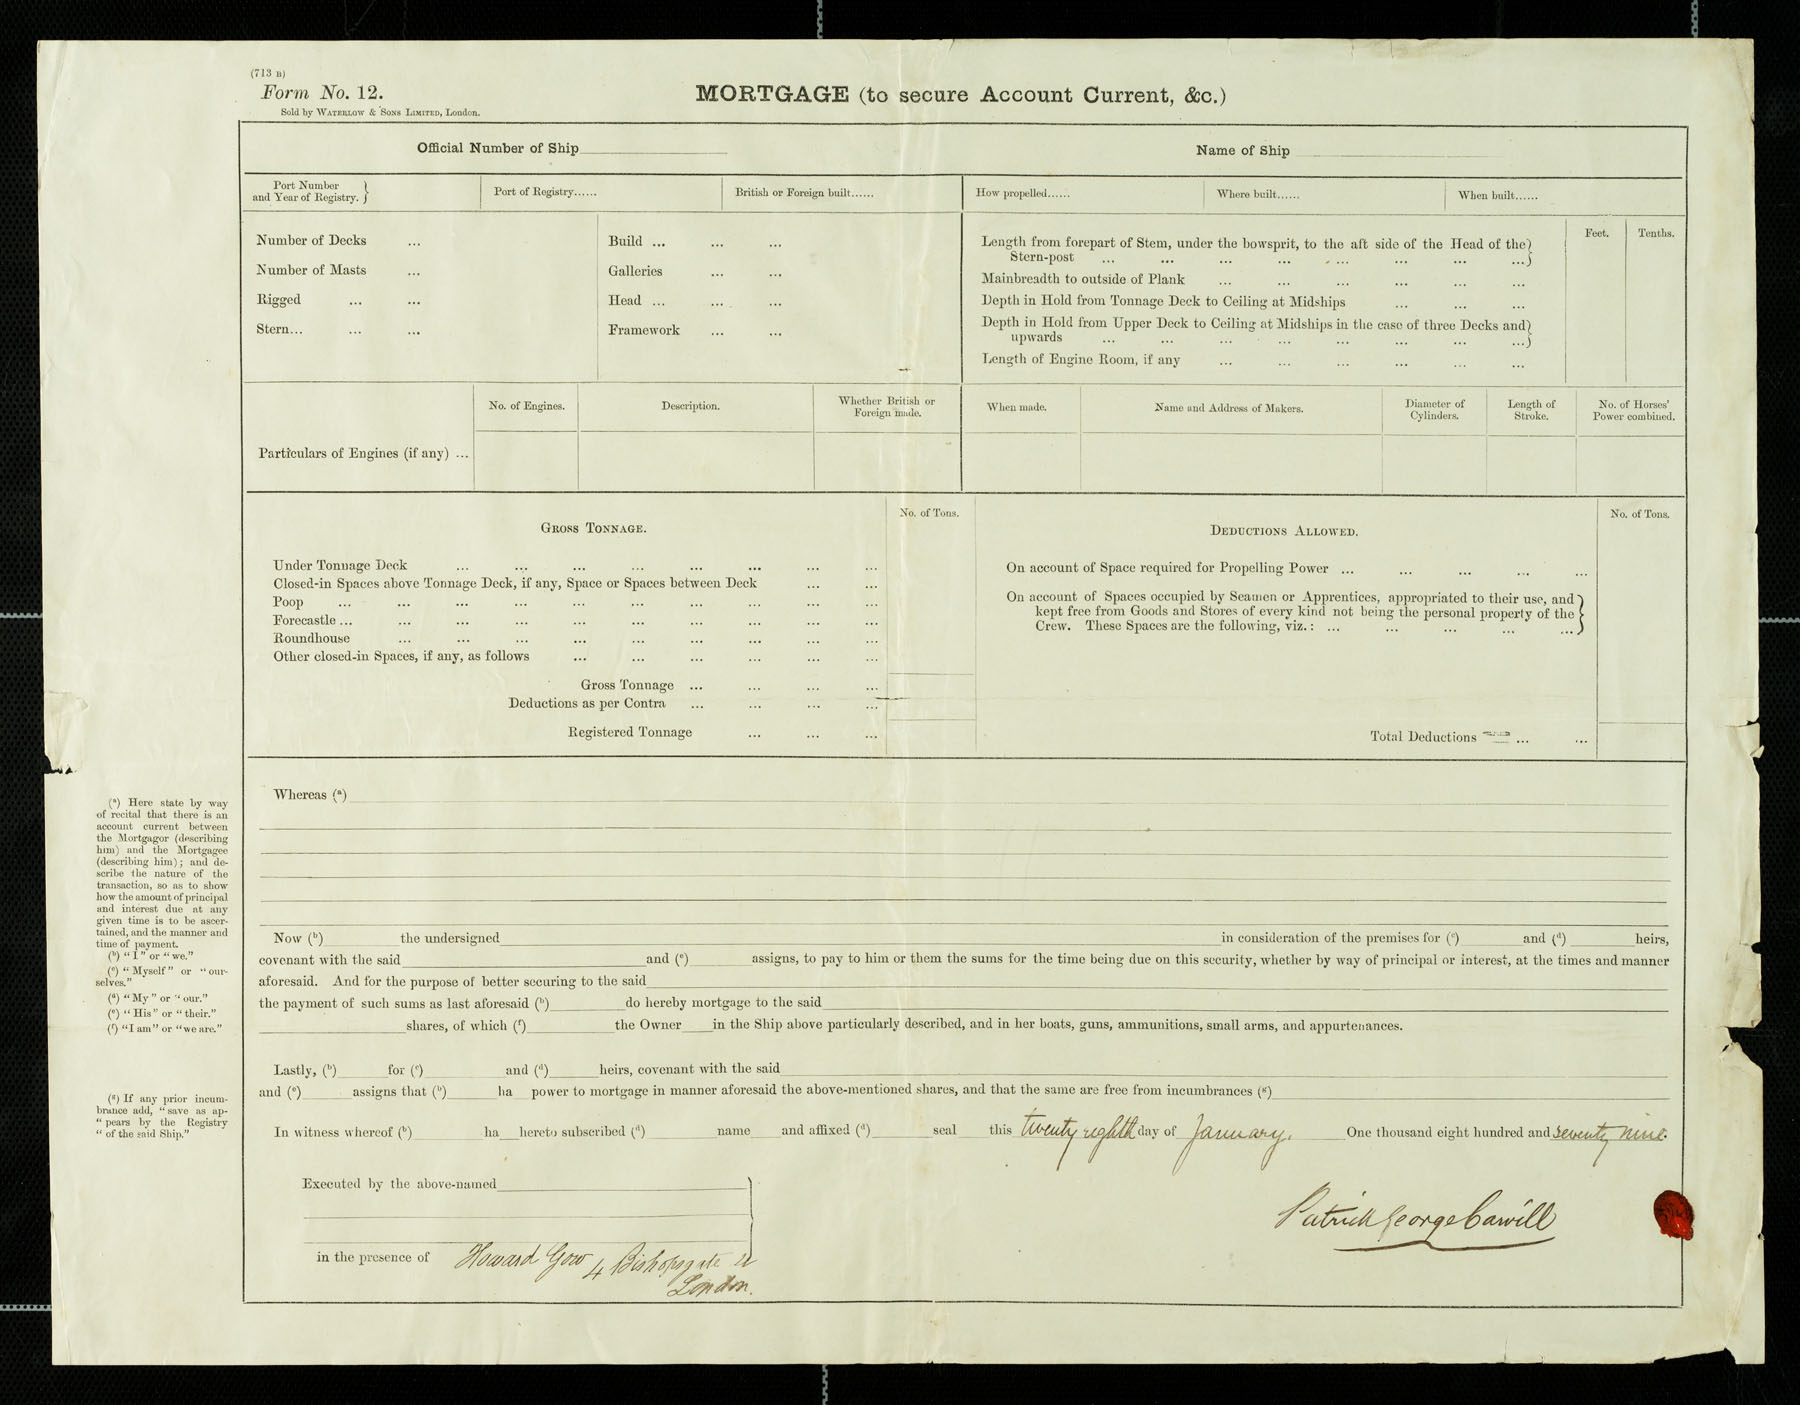 (713 B)
Form No. 12.
Sold by WATERLOW & SONS LIMITED, London.
MORTGAGE (to secure Account Current, &c.)
Official Number of Ship
Name of Ship
Port Number and Year of Registry. }
Port of Registry......
British or Foreign built......
How propelled......
Where built......
When built......
Number of Decks ...
Number of Masts ...
Rigged ... ...
Stern... ... ...
Build ... ... ...
Galleries ... ...
Head ... ... ...
Framework ... ...
Feet. Tenths.
Length from forepart of Stem, under the bowsprit, to the aft side of the Head of the }
Stern-post ... ... ... ... ... ... ... ... }
Mainbreadth to outside of Plank ... ... ... ... ... ...
Depth in Hold from Tonnage Deck to Ceiling at Midships ... ... ...
Depth in Hold from Upper Deck to Ceiling at Midships in the case of three Decks and }
upwards ... ... ... ... ... ... ... ... }
Length of Engine Room, if any ... ... ... ... ... ...
Particulars of Engines (if any) ...
No. of Engines.
Description.
Whether British or
Foreign made.
When made.
Name and Address of Makers.
Diameter of
Cylinders.
Length of
Stroke.
No. of Horses'
Power combined.
GROSS TONNAGE.
No. of Tons.
Under Tonnage Deck ... ... ... ... ... ... ... ...
Closed-in Spaces above Tonnage Deck, if any, Space or Spaces between Deck ... ...
Poop ... ... ... ... ... ... ... ... ... ...
Forecastle ... ... ... ... ... ... ... ... ... ...
Roundhouse ... ... ... ... ... ... ... ... ...
Other closed-in Spaces, if any, as follows ... ... ... ... ... ...
Gross Tonnage ... ... ... ...
Deductions as per Contra ... ... ... ...
Registered Tonnage ... ... ...
DEDUCTIONS ALLOWED.
No. of Tons.
On account of Space required for Propelling Power ... ... ... ... ...
On account of Spaces occupied by Seamen or Apprentices, appropriated to their use, and }
kept free from Goods and Stores of every kind not being the personal property of the
Crew. These Spaces are the following, viz.: ... ... ... ... ... }
Total Deductions ... ...
Whereas (a)
Now (b) the undersigned in consideration of the premises for (c) and (d) heirs,
covenant with the said and (e) assigns, to pay to him or them the sums for the time being due on this security, whether by way of principal or interest, at the times and manner
aforesaid. And for the purpose of better securing to the said
the payment of such sums as last aforesaid (b) do hereby mortgage to the said
shares, of which (f) the Owner in the Ship above particularly described, and in her boats, guns, ammunitions, small arms, and appurtenances.
Lastly, (b) for (c) and (d) heirs, covenant with the said
and (e) assigns that (b) ha power to mortgage in manner aforesaid the above-mentioned shares, and that the same are free from incumbrances (g)
In witness whereof (b) ha hereto subscribed (d) name and affixed (d) seal this twenty eighth day of January. One thousand eight hundred and seventy nine.
Executed by the above-named
in the presence of Howard Gow 4 Bishopsgate St
London.
Patrick George Cawill
(a) Here state by way
of recital that there is an
account current between
the Mortgagor (describing
him) and the Mortgagee
(describing him); and de-
scribe the nature of the
transaction, so as to show
how the amount of principal
and interest due at any
given time is to be ascer-
tained, and the manner and
time of payment.
(b) "I" or "we."
(c) "Myself" or "our-
selves."
(d) "My" or "our."
(e) "His" or "their."
(f) "I am" or "we are."
(g) If any prior incum-
brance add, "save as ap-
"pears by the Registry
"of the said Ship."